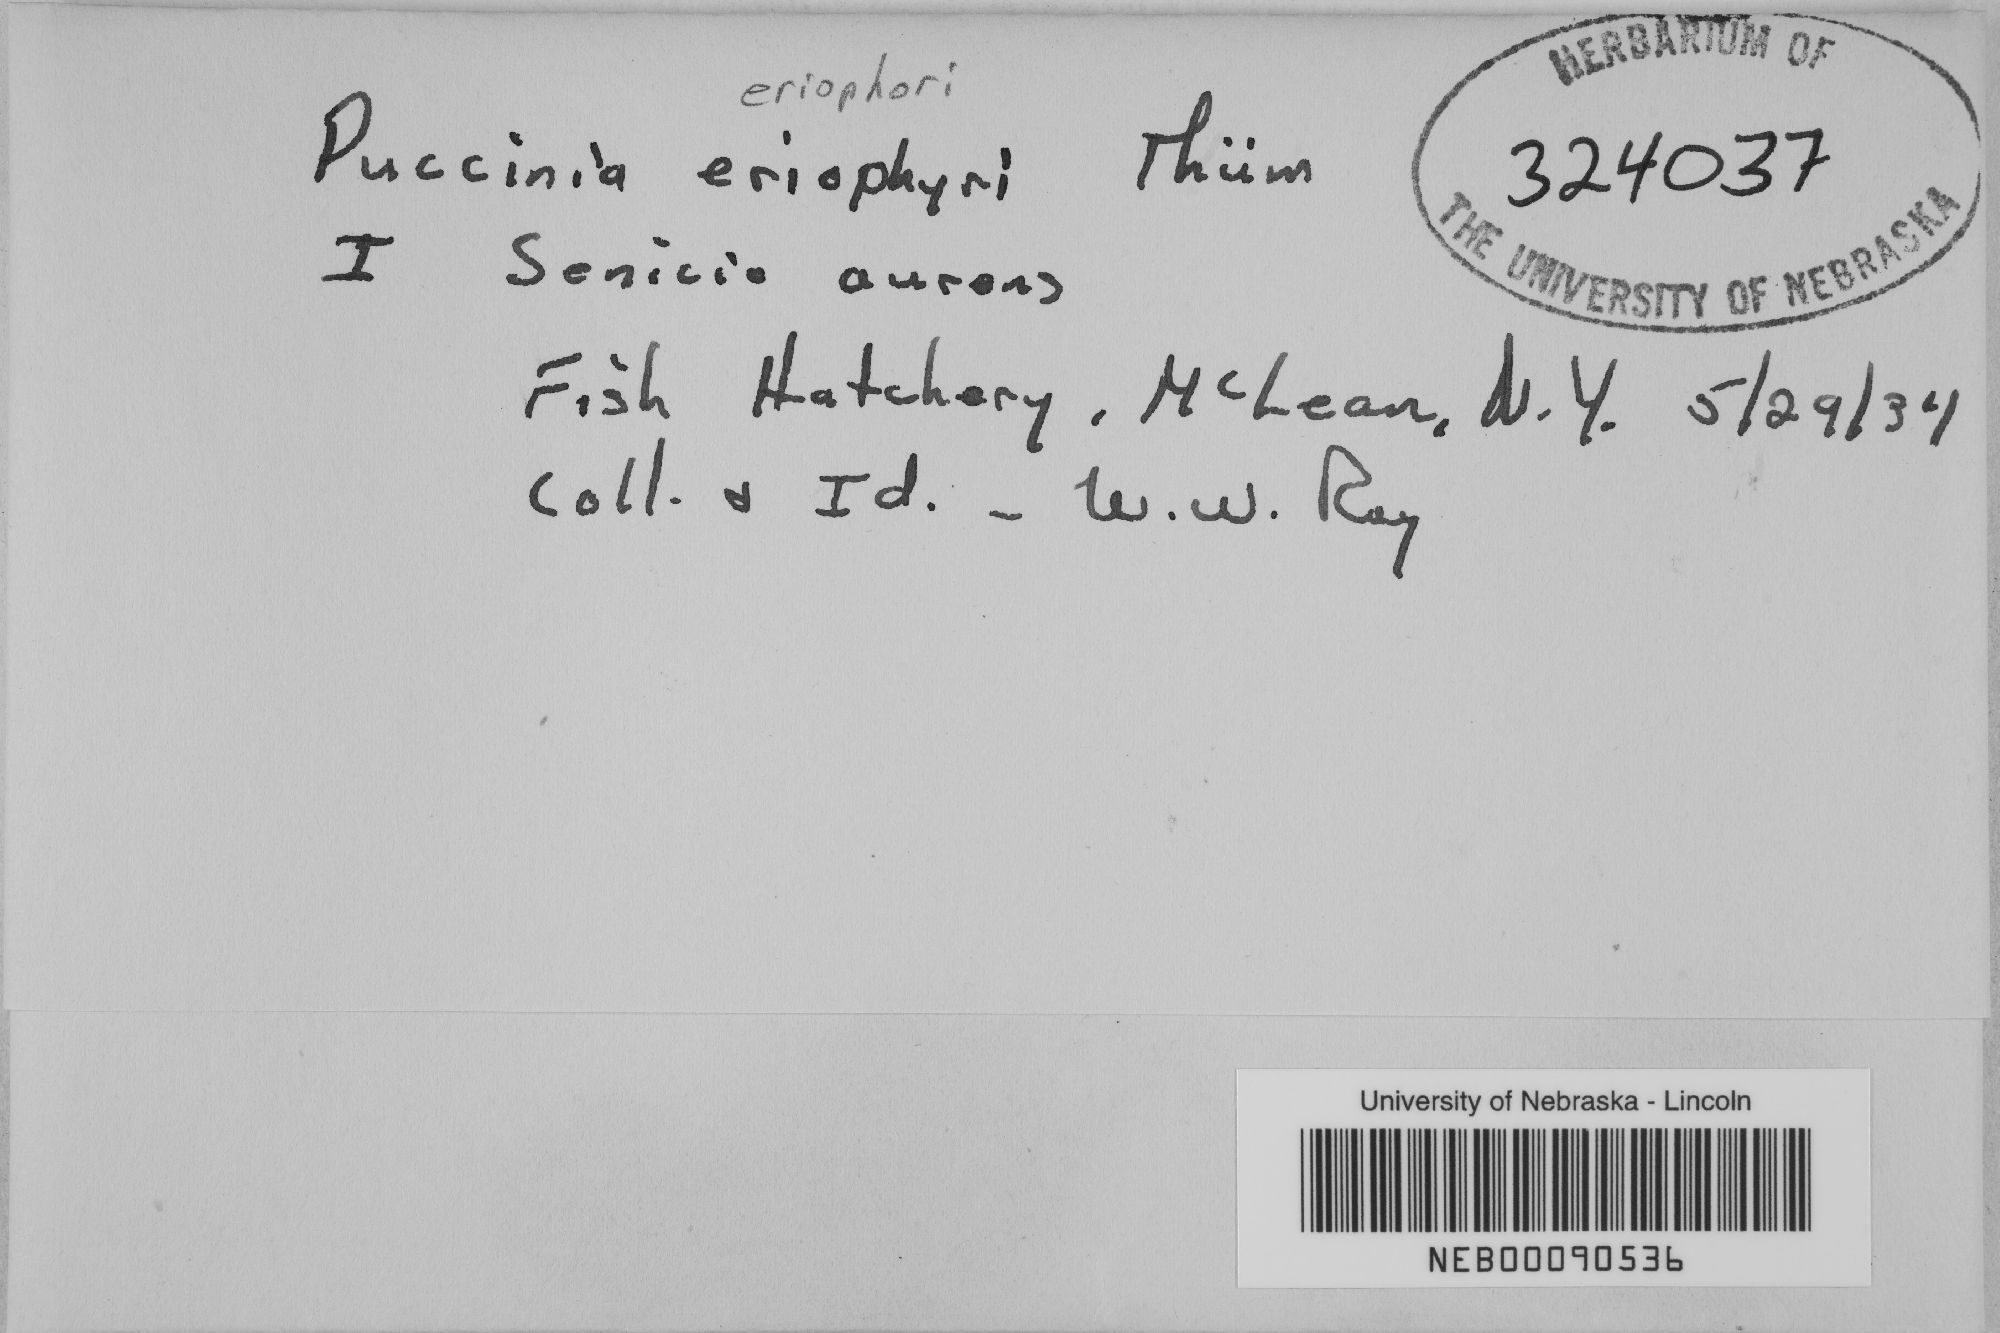 eriophori
Puccinia eriophyri Thüm
I Senicio aureus
Fish Hatchery, McLean, N.Y. 5/29/34
Coll. & Id. - W.W. Ray
HERBARIUM OF
324037
THE UNIVERSITY OF NEBRASKA
University of Nebraska - Lincoln
NEB00090536